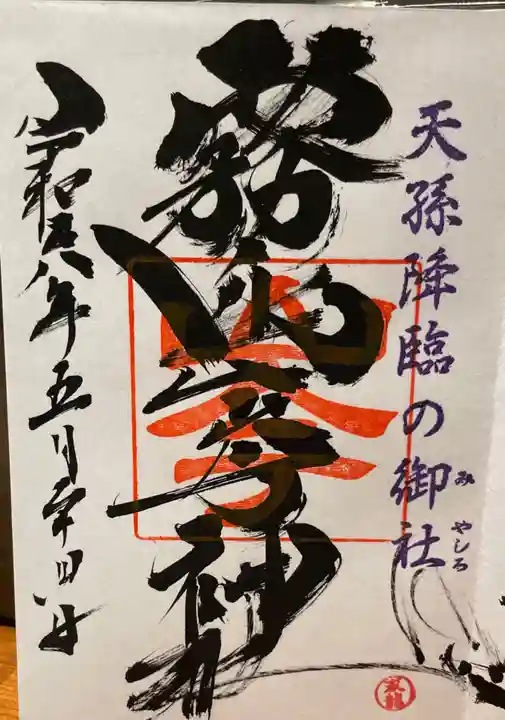 天孫降臨の御社
みやしろ
霧島岑神社
令和八年五月廿四日